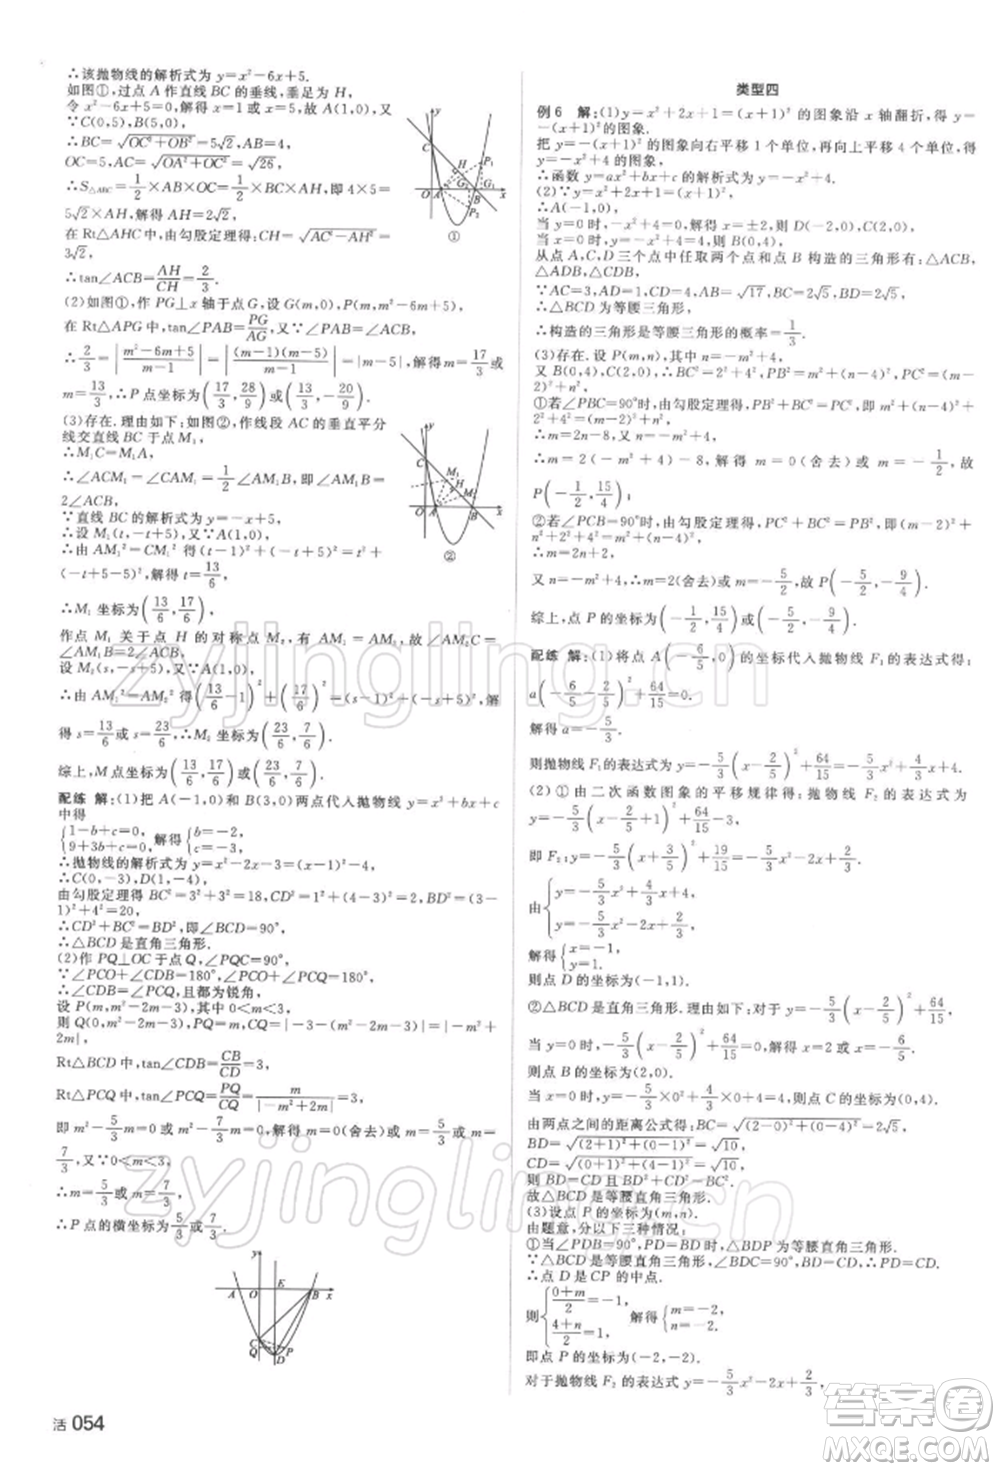 ∴该抛物线的解析式为 y=x²-6x+5.
如图①,过点 A 作直线 BC 的垂线,垂足为 H,
令 x²-6x+5=0,解得 x=1 或 x=5,故 A(1,0),又
∵C(0,5),B(5,0),
∴BC=√(OC²+OB²)=5√2,AB=4,
OC=5,AC=√(OA²+OC²)=√26,
∴S△ABC=1/2×AB×OC=1/2×BC×AH,即 4×5=
5√2×AH,解得 AH=2√2,
在 Rt△AHC 中,由勾股定理得:CH=√(AC²-AH²)=
3√2,
∴tan∠ACB=AH/CH=2/3.
(2)如图①,作 PG⊥x 轴于点 G,设 G(m,0),P(m,m²-6m+5)
在 Rt△APG 中,tan∠PAB=PG/AG,又∵∠PAB=∠ACB,
∴2/3=|(m²-6m+5)/(m-1)|=|(m-1)(m-5)/(m-1)|=|m-5|,解得 m=17/3 或
m=13/3,∴P 点坐标为(17/3,28/9)或(13/3,-20/9).
(3)存在.理由如下:如图②,作线段 AC 的垂直平分
线交直线 BC 于点 M₁,
∴M₁C=M₁A,
∴∠ACM₁=∠CAM₁=1/2∠AM₁B,即∠AM₁B=
2∠ACB,
∵直线 BC 的解析式为 y=-x+5,
∴设 M₁(t,-t+5),又∵A(1,0),
∴由 AM₁²=CM₁² 得(t-1)²+(-t+5)²=t²+
(-t+5-5)²,解得 t=13/6,
∴M₁ 坐标为(13/6,17/6),
作点 M₁ 关于点 H 的对称点 M₂,有 AM₁=AM₂,故∠AM₂C=
2∠ACB,
设 M₂(s,-s+5),又∵A(1,0),
∴由 AM₁²=AM₂² 得(13/6-1)²+(17/6)²=(s-1)²+(-s+5)²,解
得 s=13/6(舍去)或 s=23/6,∴M₂ 坐标为(23/6,7/6),
综上,M 点坐标为(13/6,17/6)或(23/6,7/6).
配练 解:(1)把 A(-1,0)和 B(3,0)两点代入抛物线 y=x²+bx+c
中得
{1-b+c=0, 9+3b+c=0, 解得{b=-2, c=-3.
∴抛物线的解析式为 y=x²-2x-3=(x-1)²-4,
∴C(0,-3),D(1,-4),
由勾股定理得 BC²=3²+3²=18,CD²=1²+(4-3)²=2,BD²=(3-
1)²+4²=20,
∴CD²+BC²=BD²,即∠BCD=90°,
∴△BCD 是直角三角形.
(2)作 PQ⊥OC 于点 Q,∠PQC=90°,
∵∠PCO+∠CDB=180°,∠PCO+∠PCQ=180°,
∴∠PCQ=∠CDB,且都为锐角,
设 P(m,m²-2m-3),其中 0<m<3,
则 Q(0,m²-2m-3),PQ=m,CQ=|-3-(m²-2m-3)|=|-m²+
2m|,
Rt△BCD 中,tan∠CDB=CB/CD=3,
Rt△PCQ 中,tan∠PCQ=PQ/CQ=m/|-m²+2m|=3,
即 m²-5/3m=0 或 m²-7/3m=0,解得 m=0(舍去)或 m=5/3 或 m=
7/3,又∵0<m<3,
∴m=5/3或 m=7/3,
∴P 点的横坐标为5/3或7/3.
y
C
O
A
H
G₁
G
B
P₁
P₂
x
①
y
C
M₁
H
M₂
O
A
B
x
②
y
E
A
O
B
x
C
Q
P
D
活 054
类型四
例 6 解:(1)y=-x²+2x+1=(x+1)² 的图象沿 x 轴翻折,得 y=
-(x+1)² 的图象.
y=-(x+1)² 的图象向右平移 1 个单位,再向上平移 4 个单位,得 y=
-x²+4 的图象,
∴函数 y=ax²+bx+c 的解析式为 y=-x²+4.
(2)∵y=x²+2x+1=(x+1)²,
∴A(-1,0),
当 y=0 时,-x²+4=0,解得 x=±2,故 D(-2,0),C(2,0),
当 x=0 时,y=-x²+4=4,故 B(0,4),
从点 A,C,D 三个点中任取两个点和点 B 构造的三角形有:△ACB,
△ADB,△CDB,
∵AC=3,AD=1,CD=4,AB=√17,BC=2√5,BD=2√5,
∴△BCD 为等腰三角形,
∴构造的三角形是等腰三角形的概率=1/3.
(3)存在.设 P(m,n),其中 n=-m²+4,
又 B(0,4),C(2,0),∴BC²=20,PB²=m²+(n-4)²,PC²=(m-
2)²+n²,
①若∠PBC=90°时,由勾股定理得,PB²+BC²=PC²,即 m²+(n-4)²+
2²+4²=(m-2)²+n²,
∴m=2n-8,
∴m=-2m²+8-8,解得 m=0(舍去)或 m=-1/2,故
P(-1/2,15/4);
②若∠PCB=90°时,由勾股定理得,PC²+BC²=PB²,即(m-2)²+
n²+2²+4²=m²+(n-4)²,
∴m=2n+2,
又 n=-m²+4,解得 m=2(舍去)或 m=-5/2,故 P(-5/2,-9/4).
综上,点 P 的坐标为(-1/2,15/4)或(-5/2,-9/4).
配练 解:(1)将点 A(-6/5,0)的坐标代入抛物线 F₁ 的表达式得:
a(-6/5-2/5)²+64/15=0,
解得 a=-5/3.
则抛物线 F₁ 的表达式为 y=-5/3(x-2/5)²+64/15=-5/3x²+4/3x+4.
(2)①由二次函数图象的平移规律得:抛物线 F₂ 的表达式为
y=-5/3(x-2/5+1)²+64/15-3,
即 F₂:y=-5/3(x+3/5)²+19/15=-5/3x²-2x+2/3,
由{y=-5/3x²+4/3x+4, y=-5/3x²-2x+2/3,
解得{x=-1, y=1.
则点 D 的坐标为(-1,1),
②△BCD 为直角三角形.理由如下:对于 y=-5/3(x-2/5)²+64/15,
当 y=0 时,-5/3(x-2/5)²+64/15=0,解得 x=2 或 x=-6/5,
则点 B 的坐标为(2,0).
当 x=0 时,y=-5/3×0²+4/3×0+4=4,则点 C 的坐标为(0,4),
由两点之间的距离公式得:BC=√((2-0)²+(0-4)²)=2√5,
BD=√((2+1)²+(0-1)²)=√10,
CD=√((0+1)²+(4-1)²)=√10,
则 BD=CD 且 BD²+CD²=BC²,
故△BCD 是等腰直角三角形.
(3)设点 P 的坐标为(m,n),
由题意,分以下三种情况:
①当∠BDP=90°,BD=PD 时,△BDP 为等腰直角三角形,
∵△BCD 是等腰直角三角形,∠BDC=90°,BD=CD,∴PD=CD,
∴点 D 是 CP 的中点.
则{(0+m)/2=-1, (4+n)/2=1, 解得{m=-2, n=-2.
即点 P 的坐标为(-2,-2).
对于抛物线 F₂ 的表达式 y=-5/3x²-2x+2/3,
zyjingling.cn
zyjingling.cn
答案圈
MXQE.COM